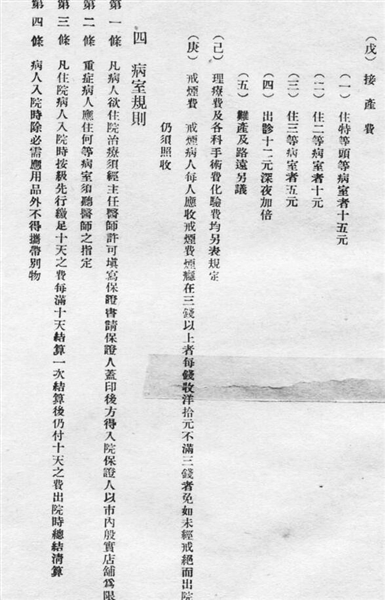 (戊) 接產費
(一) 住特等頭等病室者十五元
(二) 住二等病室者十元
(三) 住三等病室者五元
(四) 出診十二元深夜加倍
(五) 難產及路遠另議
(己) 理療費及各科手術費化驗費均另表規定
(庚) 戒煙費 戒煙病人每人應收戒煙費煙癮在三錢以上者每錢收洋拾元不滿三錢者免如未經戒絕而出院
仍須照收
四 病室規則
第一條 凡病人欲住院治療須經主任醫師許可填寫保證書請保證人蓋印後方得入院保證人以市內殷實店舖爲限
第二條 重症病人應住何等病室須聽醫師之指定
第三條 凡住院病人入院時按級先行繳足十天之費每滿十天結算一次結算後仍付十天之費出院時總結清算
第四條 病人入院時除必需應用品外不得攜帶別物